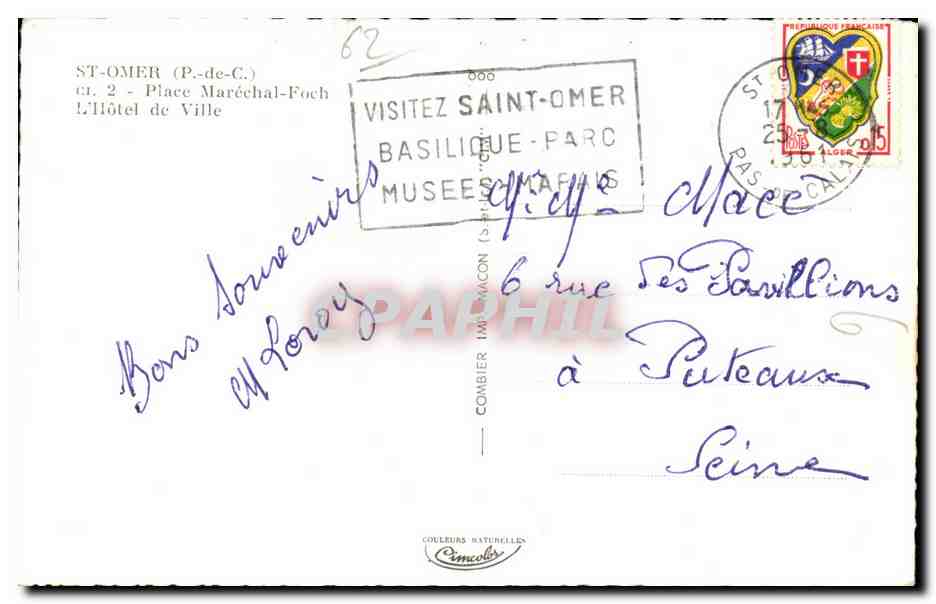 62
ST-OMER (P.-de-C.)
CI. 2 - Place Maréchal-Foch
L'Hôtel de Ville
VISITEZ SAINT-OMER
BASILIQUE-PARC
MUSEES-MARAIS
RÉPUBLIQUE FRANÇAISE
POSTES
ALGER
0,15
ST-OMER
17
25-
1961
PAS-DE-CALAIS
Bons Souvenirs
M Leroy
Mr. Me Macé
6 rue des Pavillions
à Puteaux
Seine
COMBIER IMP. MACON
CPAPHIL
COULEURS NATURELLES
Cimcolor